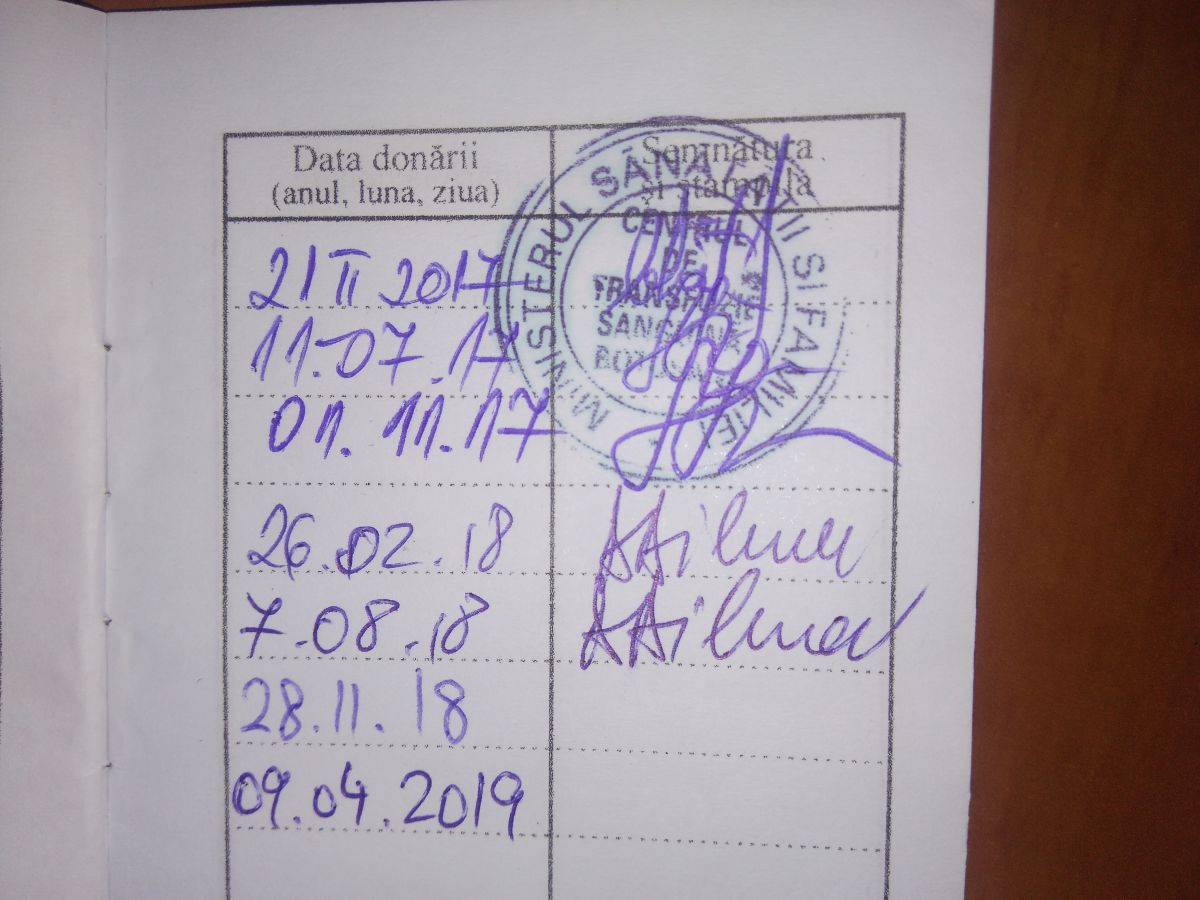 Data donării
(anul, luna, ziua)
Semnătura
și ștampila
MINISTERUL SĂNĂTĂȚII ȘI FAMILIEI
CENTRUL
DE
TRANSFUZIE
SANGUINĂ
21 II 2017
11.07.17
01.11.17
26.02.18
7.08.18
28.11.18
09.04.2019